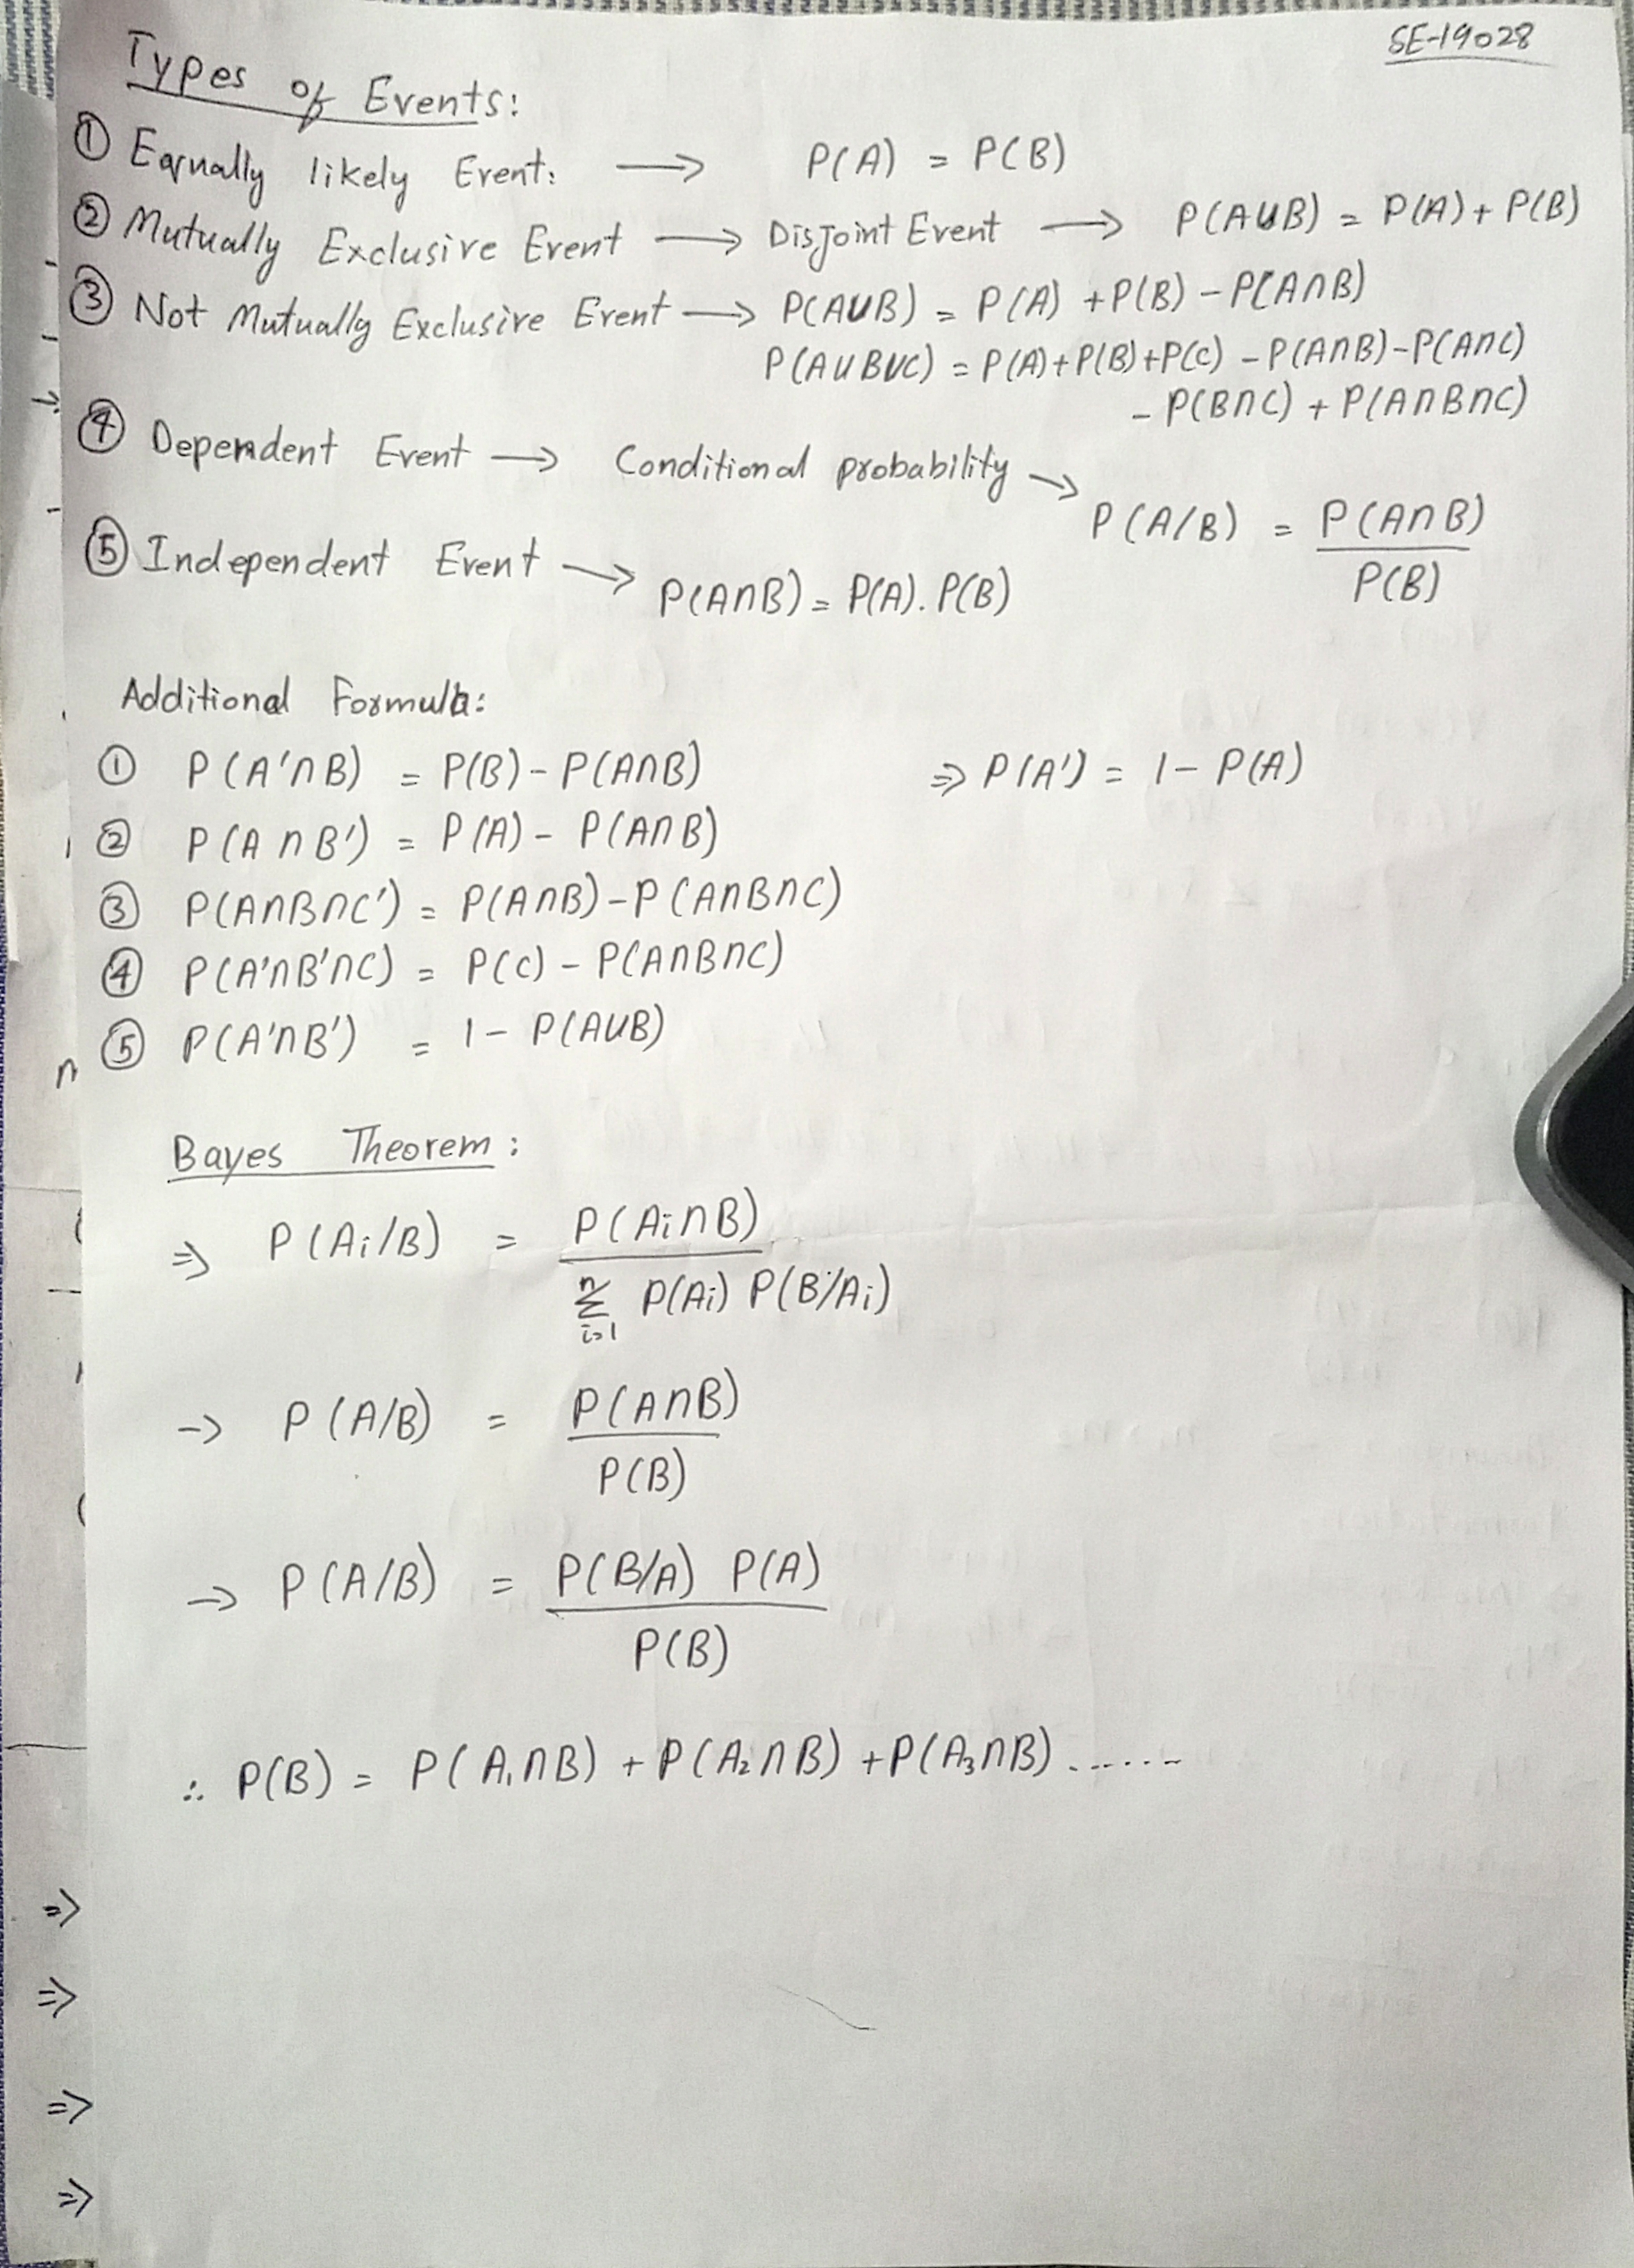 SE-19028
Types of Events:
① Equally likely Event: ⟶ P(A) = P(B)
② Mutually Exclusive Event ⟶ Disjoint Event ⟶ P(A∪B) = P(A) + P(B)
③ Not Mutually Exclusive Event ⟶ P(A∪B) = P(A) + P(B) - P(A∩B)
P(A∪B∪C) = P(A) + P(B) + P(C) - P(A∩B) - P(A∩C)
- P(B∩C) + P(A∩B∩C)
④ Dependent Event ⟶ Conditional probability → P(A/B) = P(A∩B) / P(B)
⑤ Independent Event ⟶ P(A∩B) = P(A). P(B)
Additional Formula:
① P(A'∩B) = P(B) - P(A∩B) ⇒ P(A') = 1 - P(A)
② P(A∩B') = P(A) - P(A∩B)
③ P(A∩B∩C') = P(A∩B) - P(A∩B∩C)
④ P(A'∩B'∩C) = P(C) - P(A∩B∩C)
⑤ P(A'∩B') = 1 - P(A∪B)
Bayes Theorem:
⇒ P(Ai/B) = P(Ai∩B) / n Σ i=1 P(Ai) P(B/Ai)
→ P(A/B) = P(A∩B) / P(B)
→ P(A/B) = P(B/A) P(A) / P(B)
∴ P(B) = P(A₁∩B) + P(A₂∩B) + P(A₃∩B) ......
⇒
⇒
⇒
⇒